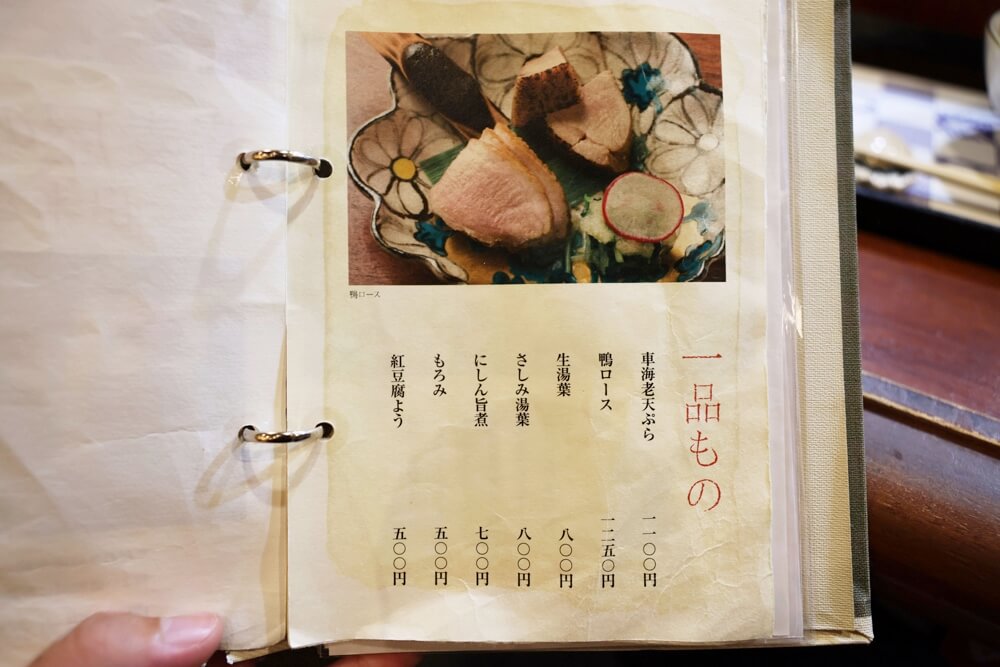 鴨ロース
一品もの
車海老天ぷら 一一〇〇円
鴨ロース 一二五〇円
生湯葉 八〇〇円
さしみ湯葉 八〇〇円
にしん旨煮 七〇〇円
もろみ 五〇〇円
紅豆腐よう 五〇〇円